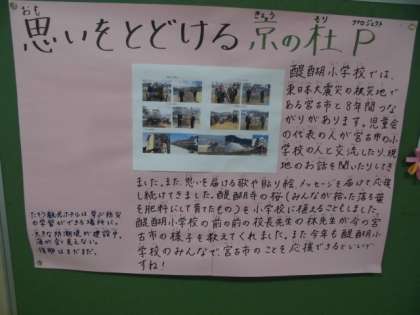 おも きょう もり プロジェクト
思いをとどける 京の杜 P
醍醐小学校では、
東日本大震災の被災地で
ある宮古市と8年間つな
がりがあります。児童会
の代表の人が宮古市の小
学校の人と交流したり、現
地のお話を聞いたりしてき
ました。また、思いを届ける歌や貼り絵、メッセージを届けて応援
し続けてきました。醍醐寺の桜(みんなが拾った落ち葉
を肥料にして育てたもの)を小学校に植えることもしました。
醍醐小学校の前の前の校長先生の林先生が今の宮
古市の様子を教えてくれました。また今年も醍醐小
学校のみんなで、宮古市のことを応援できるといいで
すね!
たろう観光ホテルは、学ぶ防災
の学習ができる場所に。
大きな防潮堤が建設中。
海が全く見えない。
復興はまだまだ。